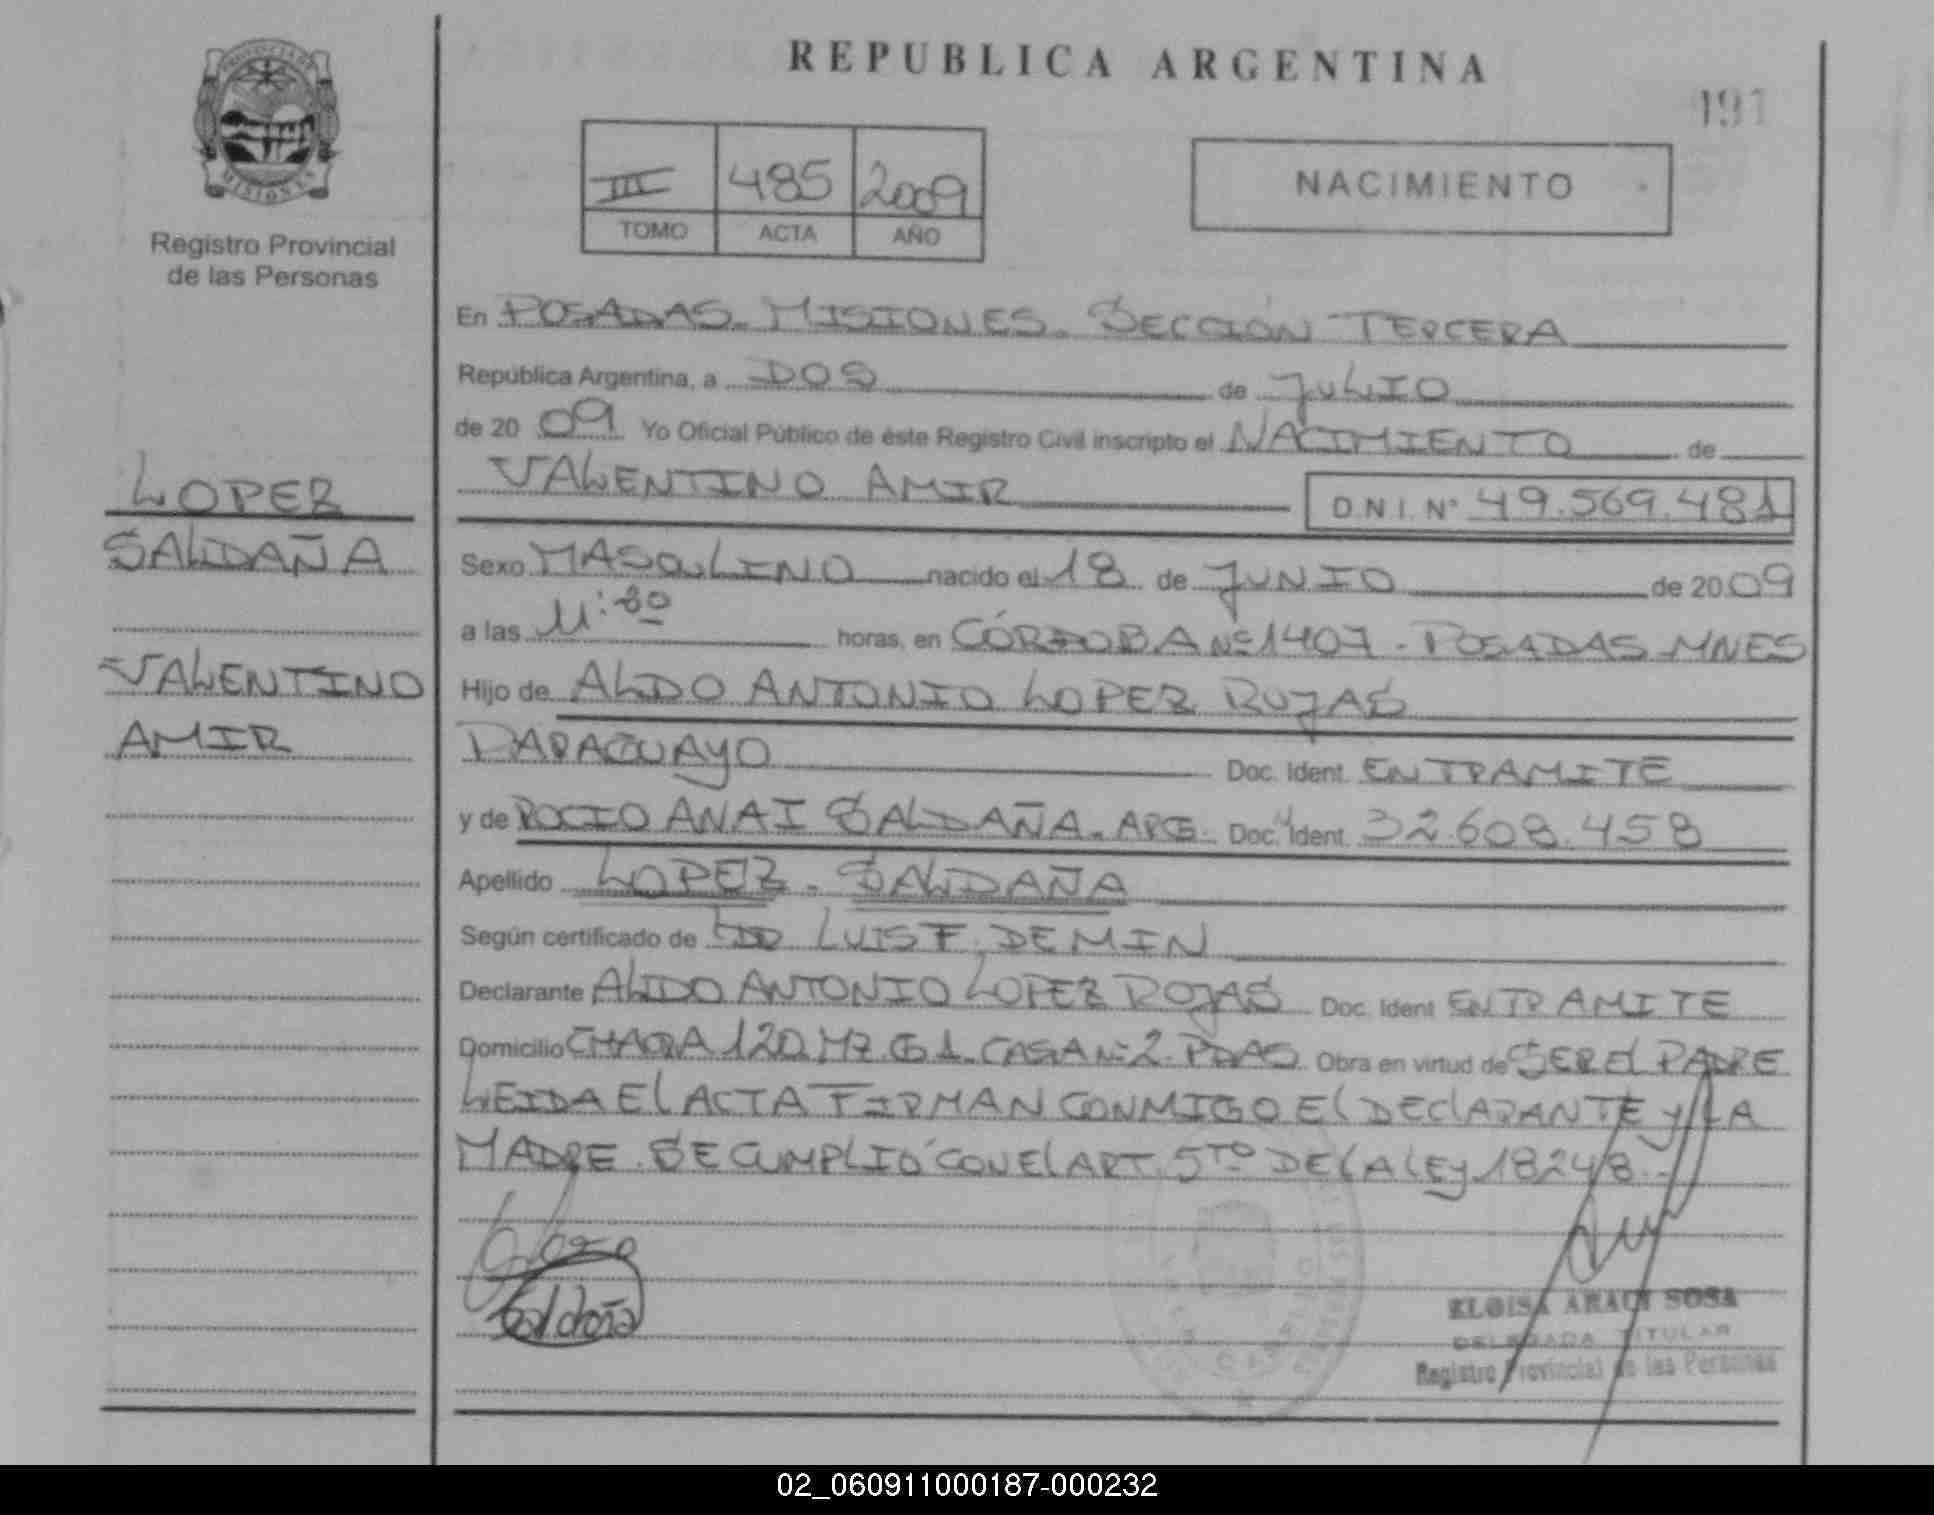 REPUBLICA ARGENTINA
191
PROVINCIA DE
MISIONES
Registro Provincial
de las Personas
III 485 2009
TOMO ACTA AÑO
NACIMIENTO
En POSADAS. MISIONES. SECCIÓN TERCERA
República Argentina, a DOS de JULIO
de 20 09 Yo Oficial Público de éste Registro Civil inscripto el NACIMIENTO de
VALENTINO AMIR D.N.I. Nº 49.569.481
LOPEZ
SALDAÑA
VALENTINO
AMIR
Sexo MASCULINO nacido el 18 de JUNIO de 20 09
a las 11:30 horas, en CÓRDOBA Nº 1407 - POSADAS MNES
Hijo de ALDO ANTONIO LOPEZ ROJAS
PARAGUAYO Doc. Ident. EN TRAMITE
y de ROCIO ANAI SALDAÑA. ARG. Doc. Ident. 32.608.458
Apellido LOPEZ - SALDAÑA
Según certificado de LUIS F. DEMIN
Declarante ALDO ANTONIO LOPEZ ROJAS Doc. Ident EN TRAMITE
Domicilio CHACRA 120 MZ G 1. CASA Nº 2. PDAS. Obra en virtud de SER El PADRE
LEIDA El ACTA FIRMAN CONMIGO El DEClARANTE y LA
MADRE. SE CUMPLIÓ CON El ART. 5TO DE LA LEy 18248.-
Saldaña
ELOISA ARACI SOSA
DELEGADA TITULAR
Registro Provincial de las Personas
02_060911000187-000232